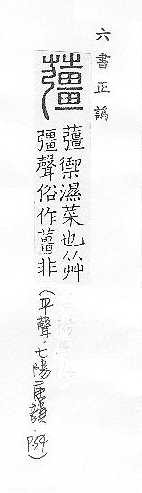 六書正譌
䕬禦濕菜也从艸
彊聲俗作薑非
(平聲.七陽唐韻.P54)